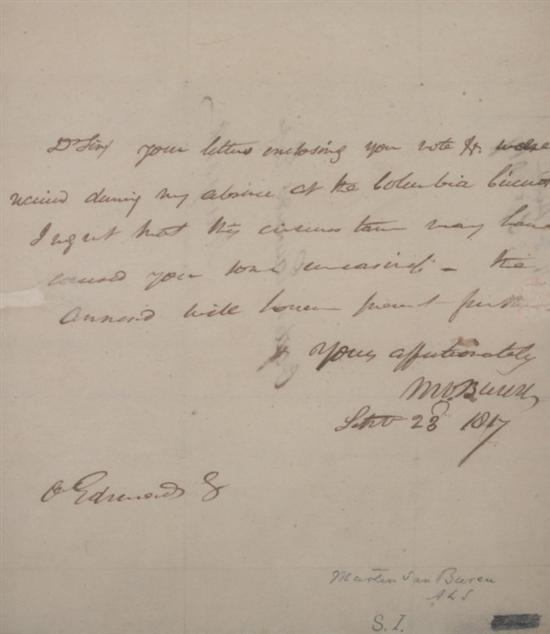 Dr Sir, your letters enclosing your note &c were
recived during my absence at the Columbia Circuit
I regret that this circumstance may have
caused you some uneasiness – the
annexed will however prevent
yours affectionately
M V Buren
Sept 23d 1817
Edmonds
Marten Van Buren
ALS
S. I.